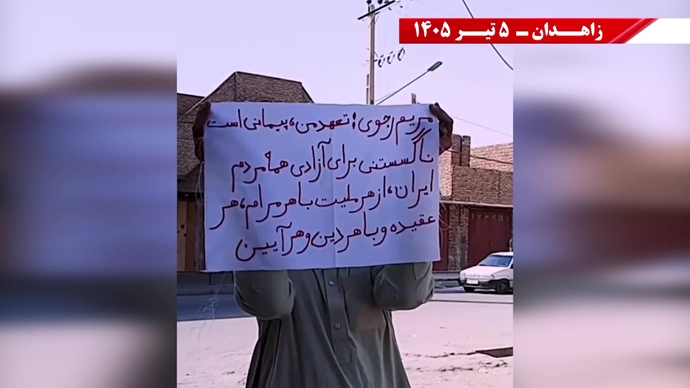 زاهدان ــ ۵ تیر ۱۴۰۵
مریم رجوی: تعهد من، پیمانی است
ناگسستنی برای آزادی همه مردم
ایران، از هر ملیت با هر مرام، هر
عقیده و با هر دین و هر آیین